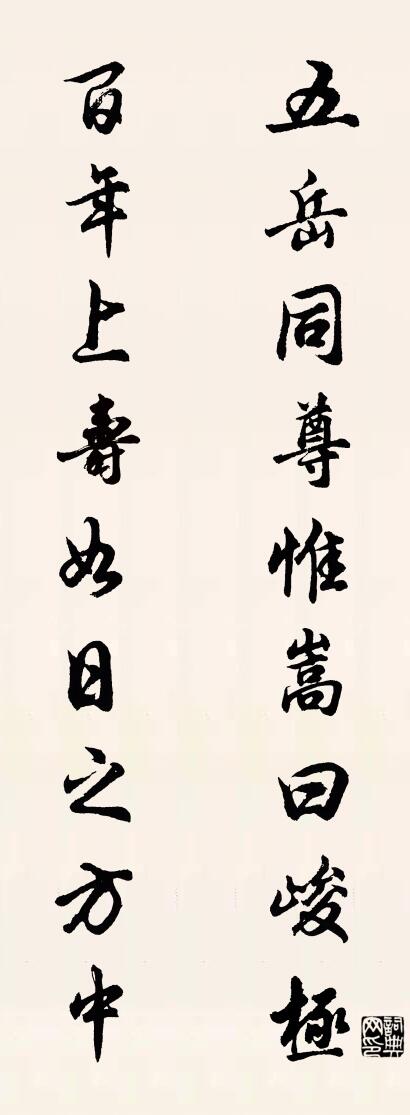 五岳同尊惟嵩曰峻極
百年上壽如日之方中
詞典網印